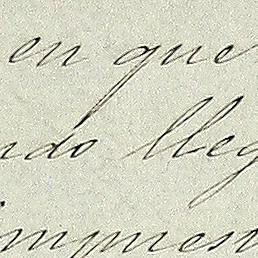 en que
ndo lleg
impues